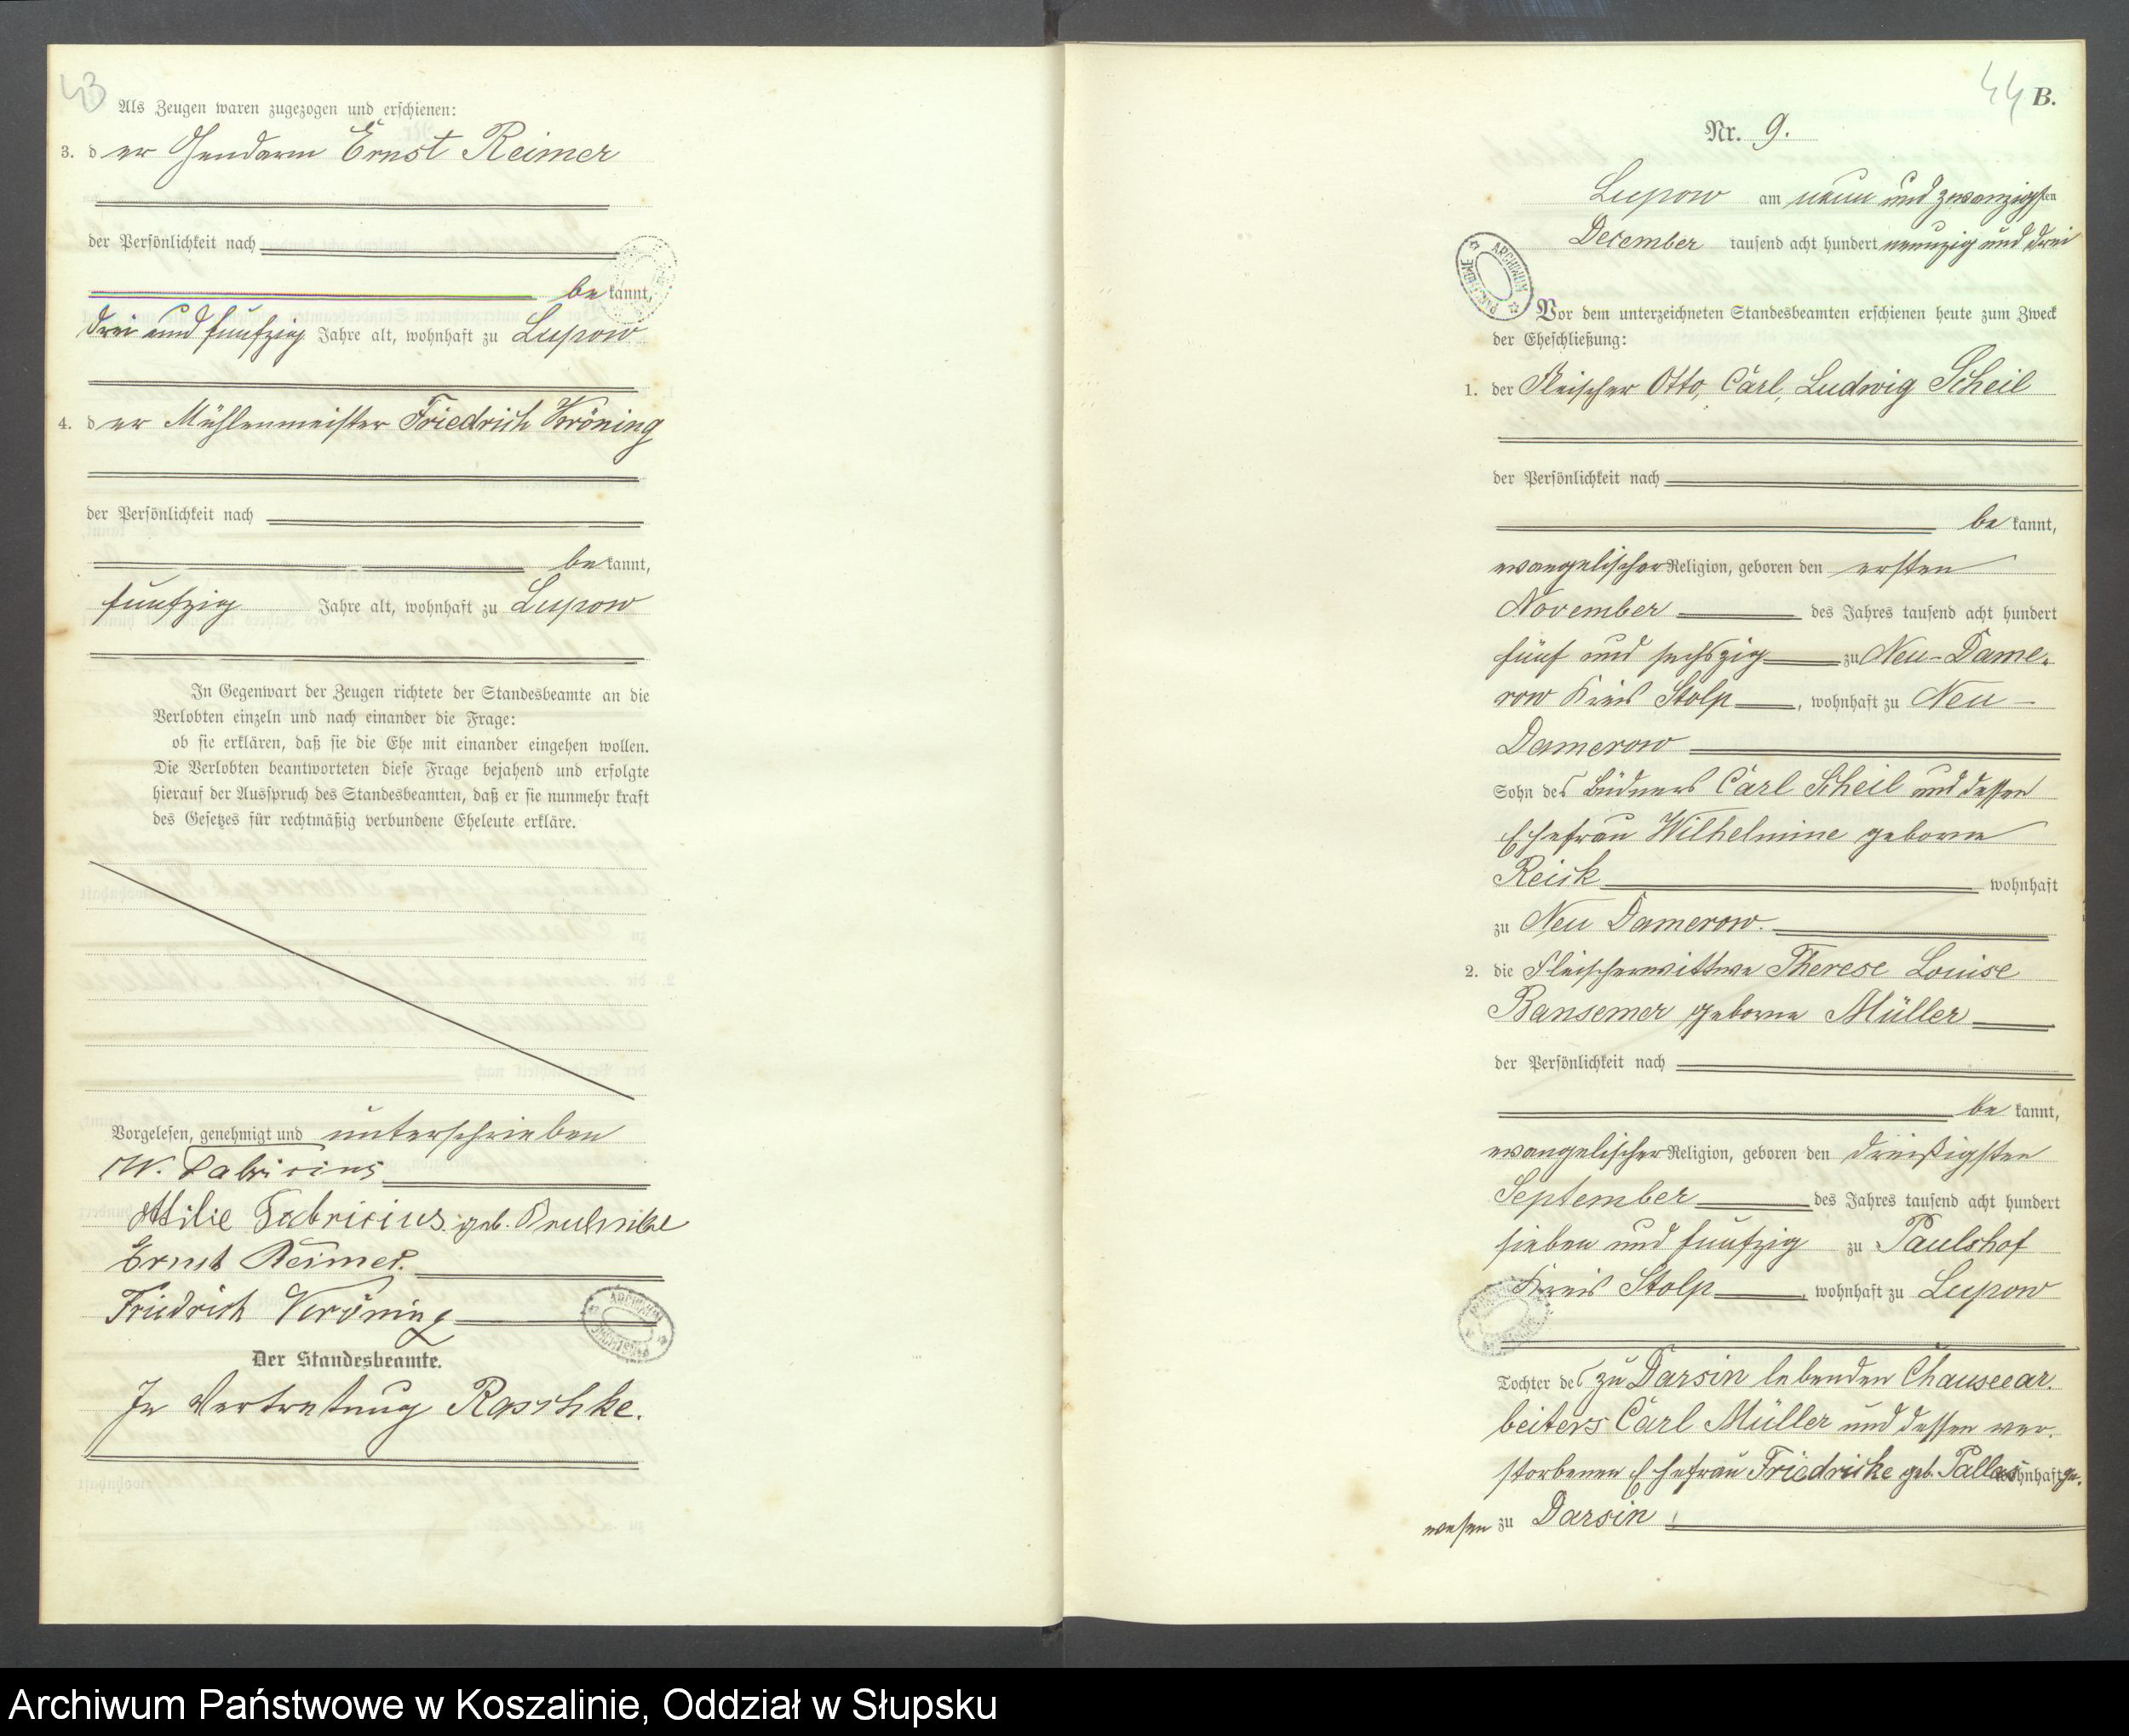 43
Als Zeugen waren zugezogen und erschienen:
3. der Gendarm Ernst Reimer
der Persönlichkeit nach
bekannt,
drei und funfzig Jahre alt, wohnhaft zu Lupow
4. der Mühlenmeister Friedrich Kröning
der Persönlichkeit nach
bekannt,
funfzig Jahre alt, wohnhaft zu Lupow
In Gegenwart der Zeugen richtete der Standesbeamte an die
Verlobten einzeln und nach einander die Frage:
ob sie erklären, daß sie die Ehe mit einander eingehen wollen.
Die Verlobten beantworteten diese Frage bejahend und erfolgte
hierauf der Ausspruch des Standesbeamten, daß er sie nunmehr kraft
des Gesetzes für rechtmäßig verbundene Eheleute erkläre.
Vorgelesen, genehmigt und unterschrieben
W. Fabricius
Ottilie Fabricius geb.
Ernst Reimer.
Friedrich Kröning
Der Standesbeamte.
In Vertretung Raschke.
44 B.
Nr. 9.
Lupow am neun und zwanzigsten
December tausend acht hundert neunzig und drei
Vor dem unterzeichneten Standesbeamten erschienen heute zum Zweck
der Eheschließung:
1. der Fleischer Otto, Carl, Ludwig Scheil
der Persönlichkeit nach
bekannt,
evangelischer Religion, geboren den ersten
November des Jahres tausend acht hundert
fünf und sechszig zu Neu-Dame-
row Kreis Stolp, wohnhaft zu Neu-
Damerow
Sohn des Büdners Carl Scheil und dessen
Ehefrau Wilhelmine geborne
Reick wohnhaft
zu Neu Damerow.
2. die Fleischerwittwe Therese Louise
Bansemer geborne Müller
der Persönlichkeit nach
bekannt,
evangelischer Religion, geboren den dreißigsten
September des Jahres tausend acht hundert
sieben und funfzig zu Paulshof
Kreis Stolp, wohnhaft zu Lupow
Tochter des zu Darsin lebenden Chauseear-
beiters Carl Müller und dessen ver-
storbenen Ehefrau Friedricke geb. Pallas wohnhaft ge-
wesen zu Darsin
Archiwum Państwowe w Koszalinie, Oddział w Słupsku